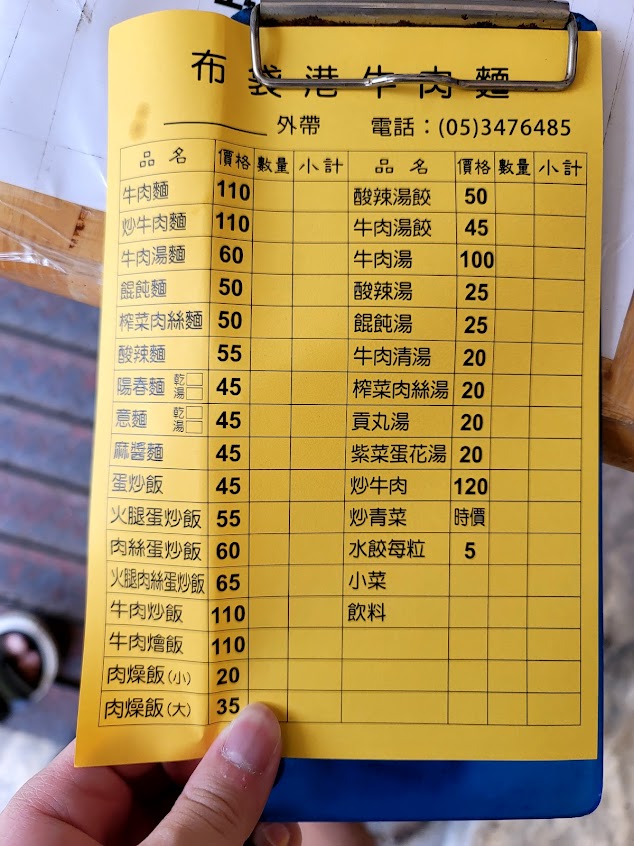 布袋港牛肉麵
外帶 電話：(05)3476485
品名 價格 數量 小計 品名 價格 數量 小計
牛肉麵 110 酸辣湯餃 50
炒牛肉麵 110 牛肉湯餃 45
牛肉湯麵 60 牛肉湯 100
餛飩麵 50 酸辣湯 25
榨菜肉絲麵 50 餛飩湯 25
酸辣麵 55 牛肉清湯 20
陽春麵 乾 湯 45 榨菜肉絲湯 20
意麵 乾 湯 45 貢丸湯 20
麻醬麵 45 紫菜蛋花湯 20
蛋炒飯 45 炒牛肉 120
火腿蛋炒飯 55 炒青菜 時價
肉絲蛋炒飯 60 水餃每粒 5
火腿肉絲蛋炒飯 65 小菜
牛肉炒飯 110 飲料
牛肉燴飯 110
肉燥飯(小) 20
肉燥飯(大) 35